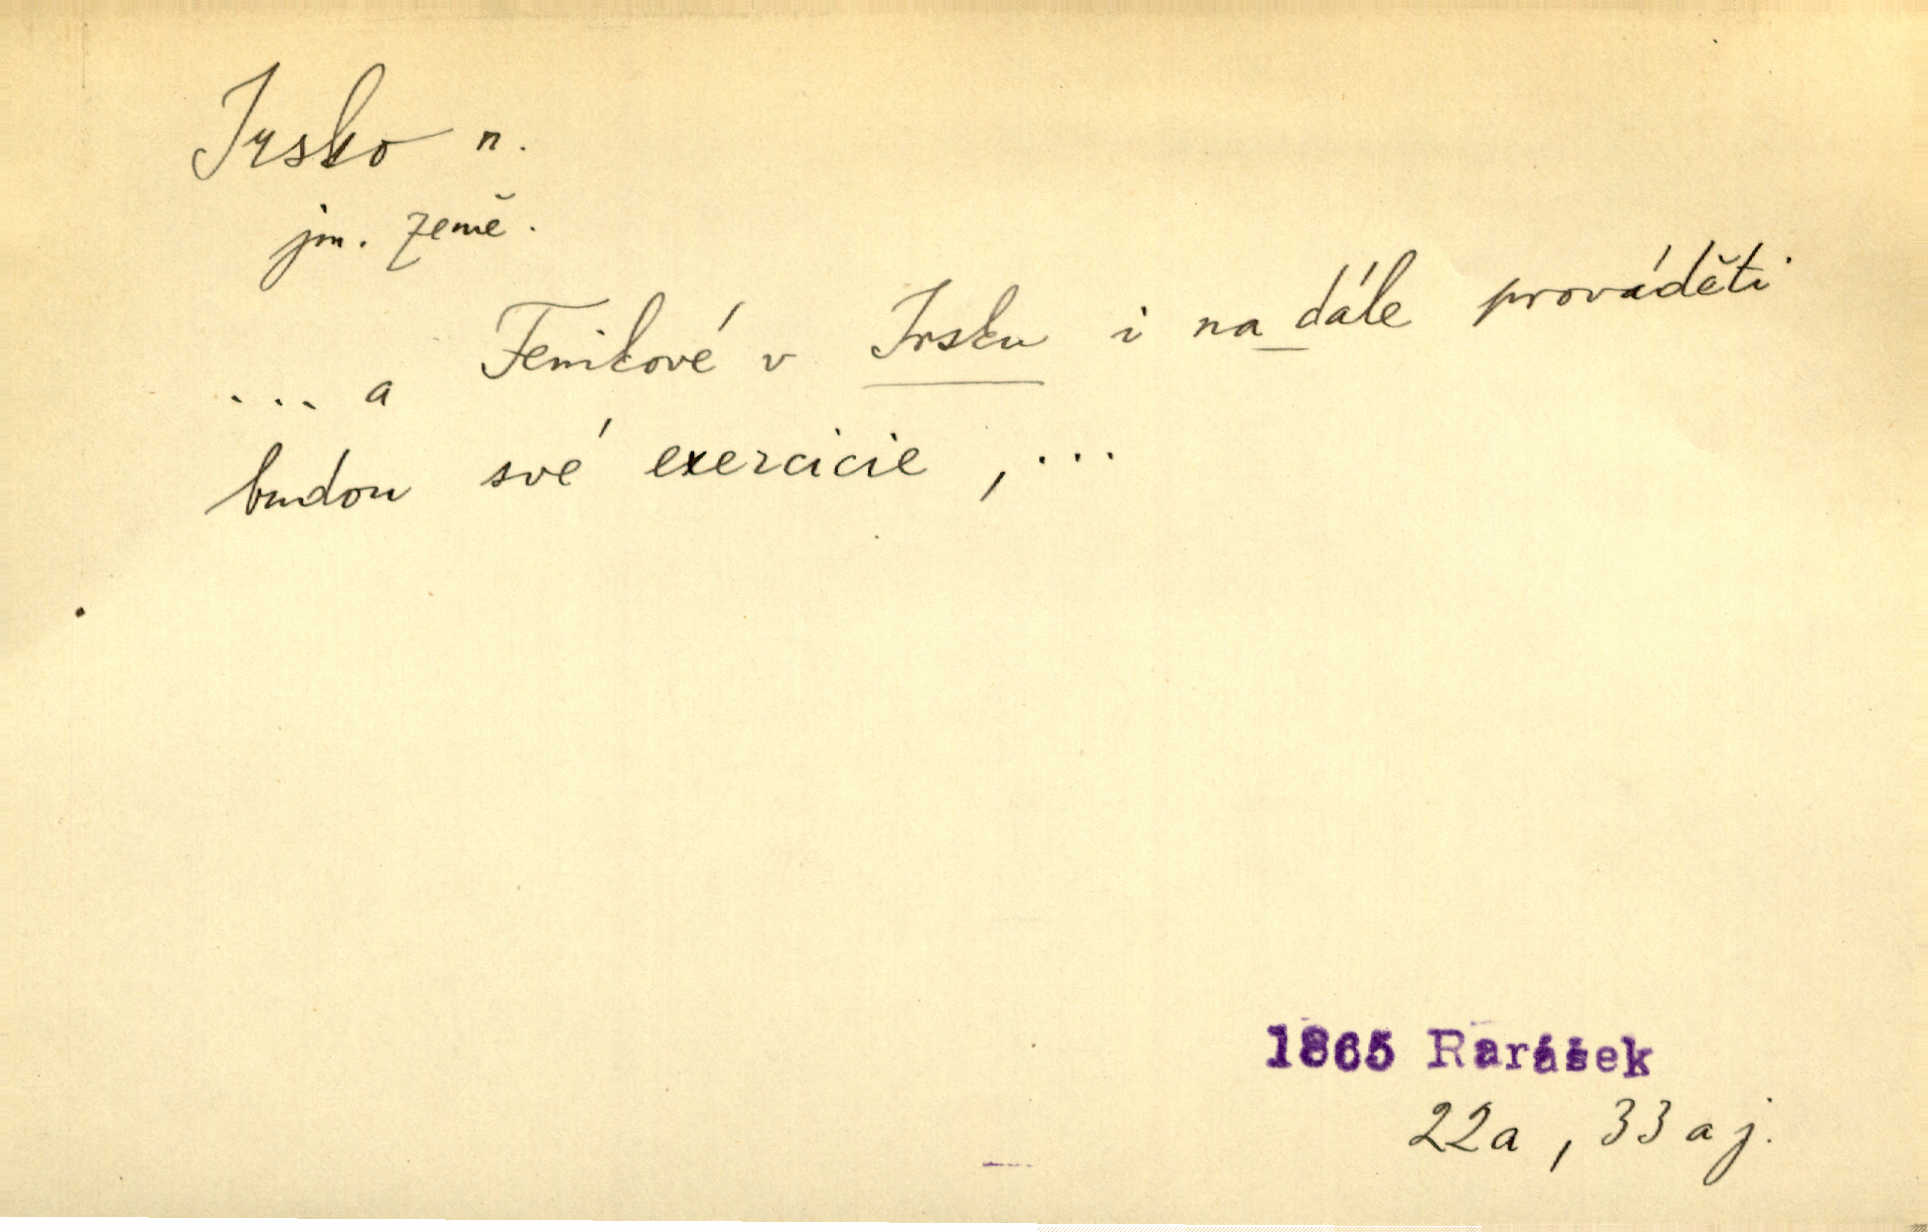 Irsko n.
jm. země.
... a Fenikové v Irsku i na dále prováděti
budou své exercicie, ...
1865 Rarášek
22a, 33 a j.